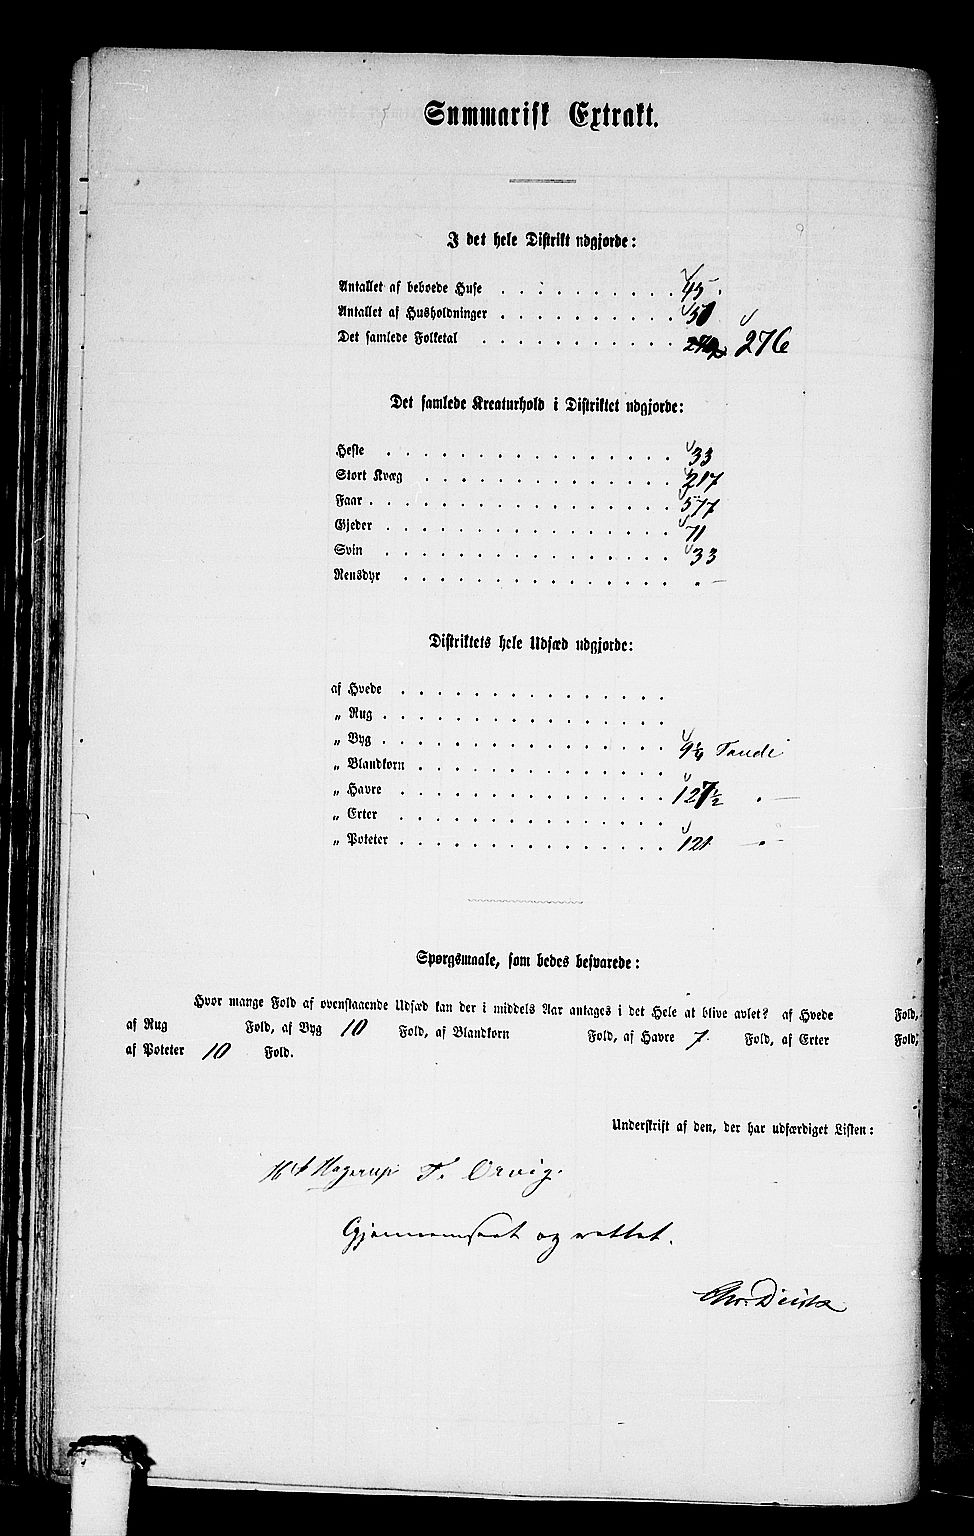 Summarisk Extrakt.
I det hele Distrikt udgjorde:
Antallet af beboede Huse . . . . . . . . . . 45
Antallet af Husholdninger . . . . . . . . . . 50
Det samlede Folketal . . . . . . . . . . . 276
Det samlede Kreaturhold i Distriktet udgjorde:
Heste . . . . . . . . . . . . . . . . 33
Stort Kvæg . . . . . . . . . . . . . . 217
Faar . . . . . . . . . . . . . . . . . 577
Gjeder . . . . . . . . . . . . . . . . 71
Svin . . . . . . . . . . . . . . . . 33
Rensdyr . . . . . . . . . . . . . . . „ —
Distriktets hele Udsæd udgjorde:
af Hvede . . . . . . . . . . . . . . .
„ Rug . . . . . . . . . . . . . . . .
„ Byg . . . . . . . . . . . . . . . . 9 2/4 Tønde
„ Blandkorn . . . . . . . . . . . . . .
„ Havre . . . . . . . . . . . . . . . 127½ „ —
„ Erter . . . . . . . . . . . . . . .
„ Poteter . . . . . . . . . . . . . . . 121 — „ —
Spørgsmaale, som bedes besvarede:
Hvor mange Fold af ovenstaaende Udsæd kan der i middels Aar antages i det Hele at blive avlet? af Hvede Fold,
af Rug Fold, af Byg 10 Fold, af Blandkorn Fold, af Havre 7 Fold, af Erter Fold,
af Poteter 10 Fold.
Underskrift af den, der har udfærdiget Listen:
Hagerup T. Orvig.
Gjennemseet og rettet.
Chr.